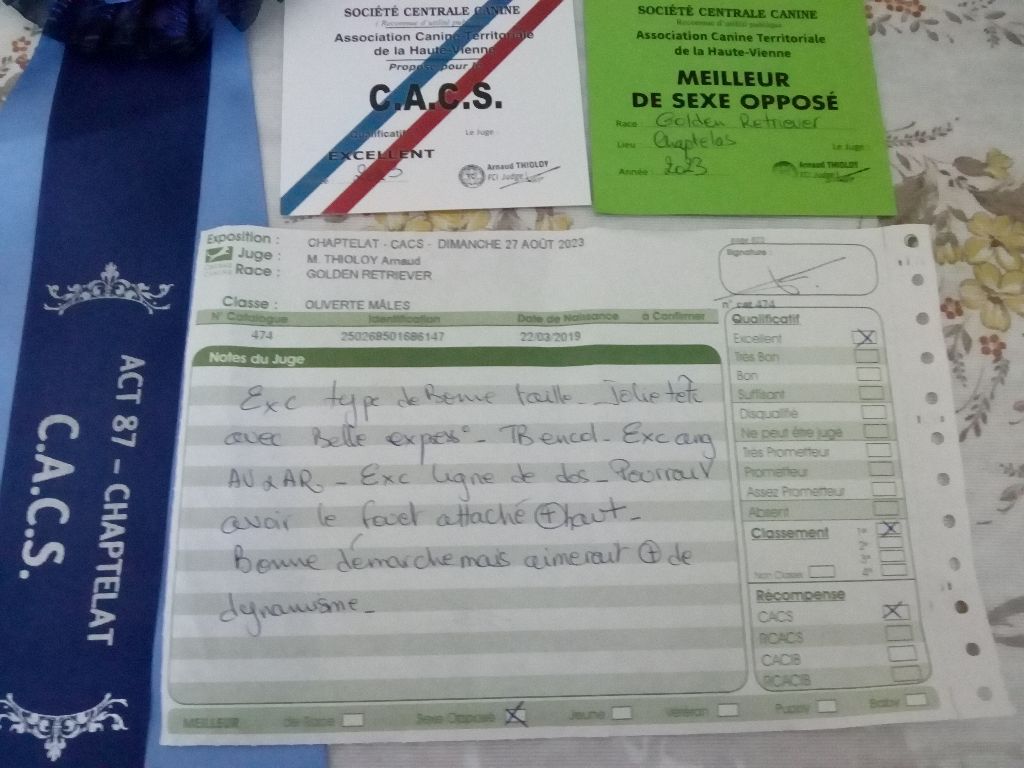 SOCIÉTÉ CENTRALE CANINE
Reconnue d'utilité publique
Association Canine Territoriale
de la Haute-Vienne
Proposé pour le
C.A.C.S.
Qualificatif
Le Juge :
EXCELLENT
2023
Arnaud THIOLOY
FCI Judge
SOCIÉTÉ CENTRALE CANINE
Reconnue d'utilité publique
Association Canine Territoriale
de la Haute-Vienne
MEILLEUR
DE SEXE OPPOSÉ
Race : Golden Retriever
Lieu : Chaptelas
Le Juge :
Année : 2023
Arnaud THIOLOY
FCI Judge
ACT 87 – CHAPTELAT
C.A.C.S.
Exposition : CHAPTELAT - CACS - DIMANCHE 27 AOÛT 2023
Juge : M. THIOLOY Arnaud
Race : GOLDEN RETRIEVER
Classe : OUVERTE MÂLES
Signature :
n° cat 474
N° Catalogue Identification Date de Naissance à Confirmer
474 250268501686147 22/03/2019
Notes du Juge
Exc type de Bonne taille - Jolie tête
avec Belle express° - TB encol - Exc ang
AV & AR - Exc ligne de dos - Pourrait
avoir le fouet attaché + haut -
Bonne démarche mais aimerait + de
dynamisme -
Qualificatif
Excellent
Très Bon
Bon
Suffisant
Disqualifié
Ne peut être jugé
Très Prometteur
Prometteur
Assez Prometteur
Absent
Classement 1er
2e
3e
Non Classé 4e
Récompense
CACS
RCACS
CACIB
RCACIB
MEILLEUR de Race Sexe Opposé Jeune Vétéran Puppy Baby